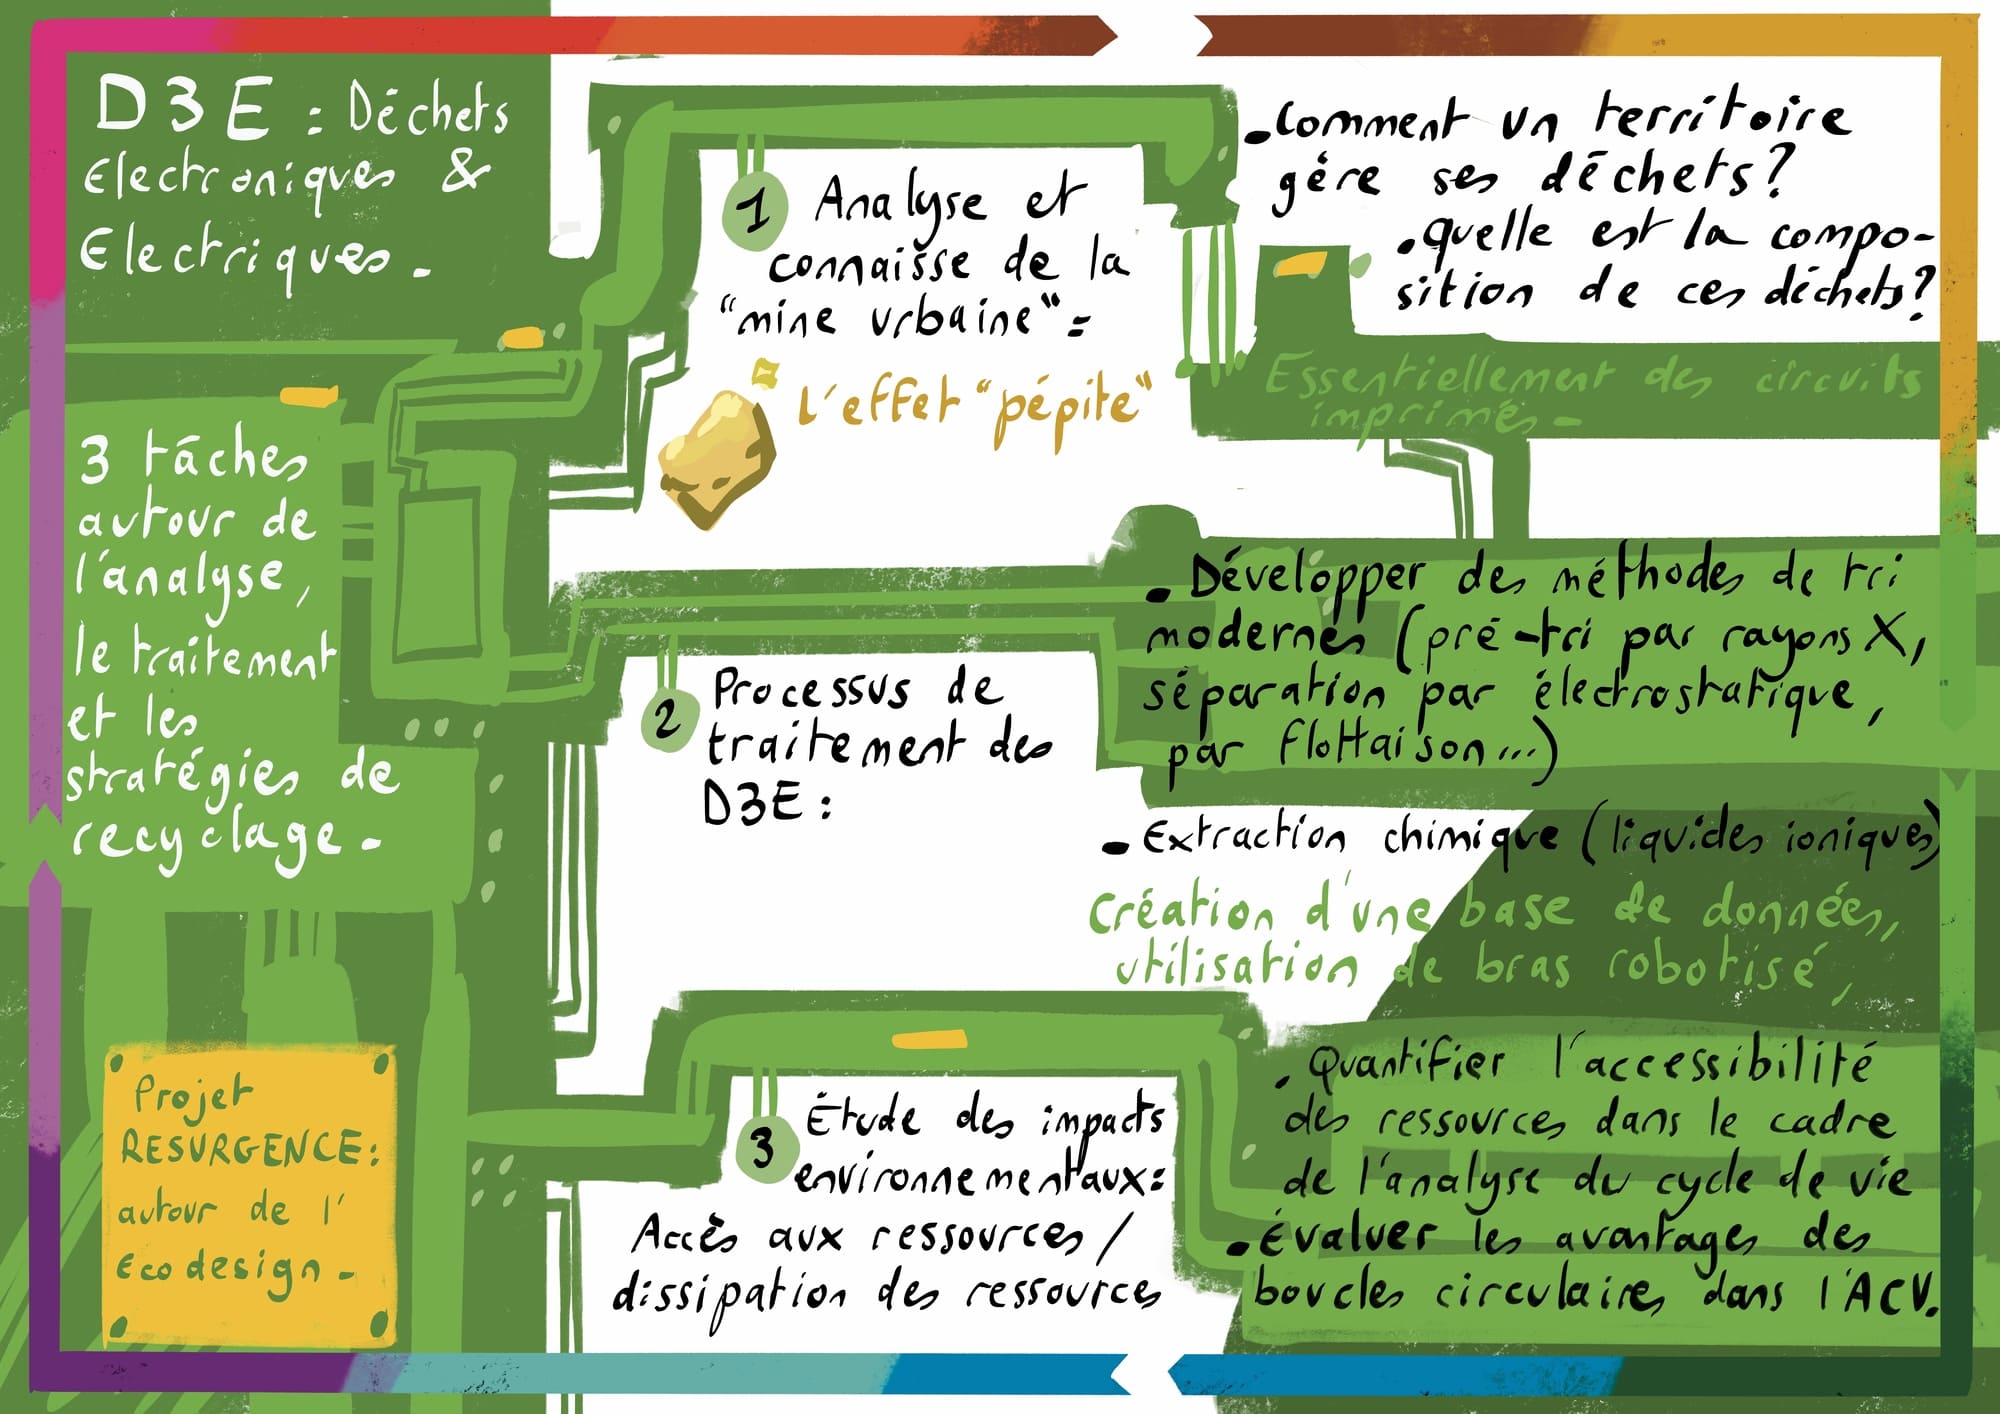 D3E : Déchets
Electroniques &
Electriques.
3 tâches
autour de
l'analyse,
le traitement
et les
stratégies de
recyclage.
Projet
RESURGENCE:
autour de l'
Ecodesign.
1 Analyse et
connaisse de la
"mine urbaine" =
L'effet "pépite"
. Comment un territoire
gère ses déchets ?
. quelle est la compo-
sition de ces déchets ?
Essentiellement des circuits
imprimés.
2 Processus de
traitement des
D3E :
. Développer des méthodes de tri
modernes (pré-tri par rayons X,
séparation par électrostatique,
par flottaison...)
- Extraction chimique (liquides ioniques)
Création d'une base de données,
utilisation de bras robotisé,
3 Étude des impacts
environnementaux :
Accès aux ressources /
dissipation des ressources
. Quantifier l'accessibilité
des ressources dans le cadre
de l'analyse du cycle de vie
. Évaluer les avantages des
boucles circulaires dans l'ACV.